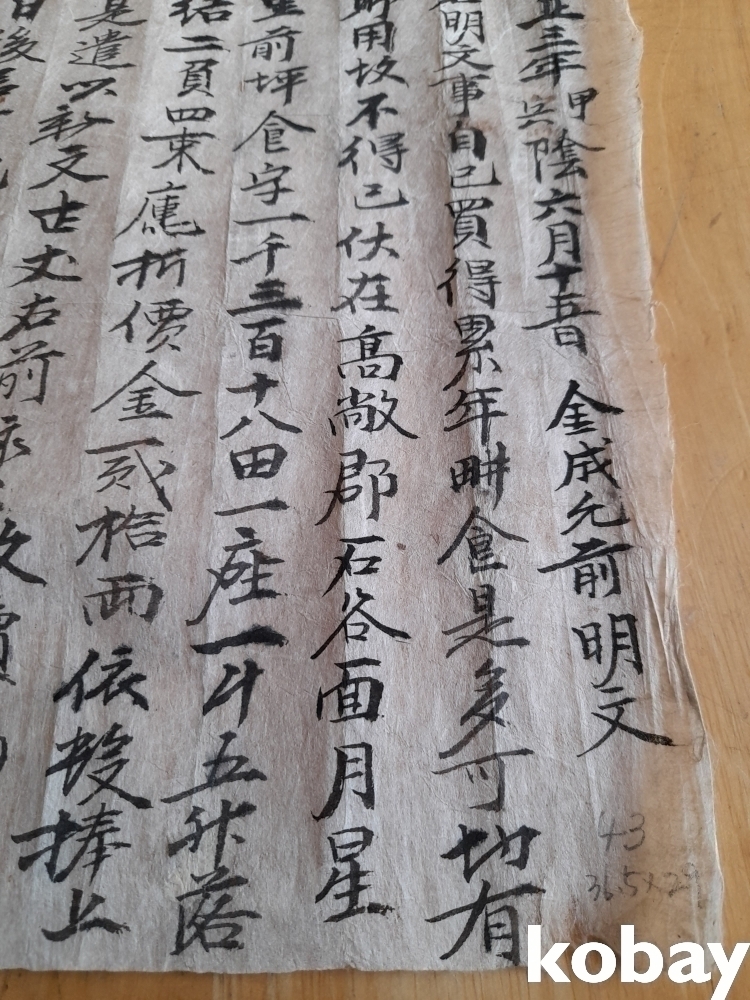 三年甲兵陰六月十五日 金成允前明文
明文事自己買得累年畊食是多可切有
用故不得已伏在高敞郡石谷面月星
前坪食字一千三百十八田一座一斗五升落
結二負四束廤折價金貳拾兩依數捧上
是遣以新文古丈右前
後
43
36.5x29
kobay